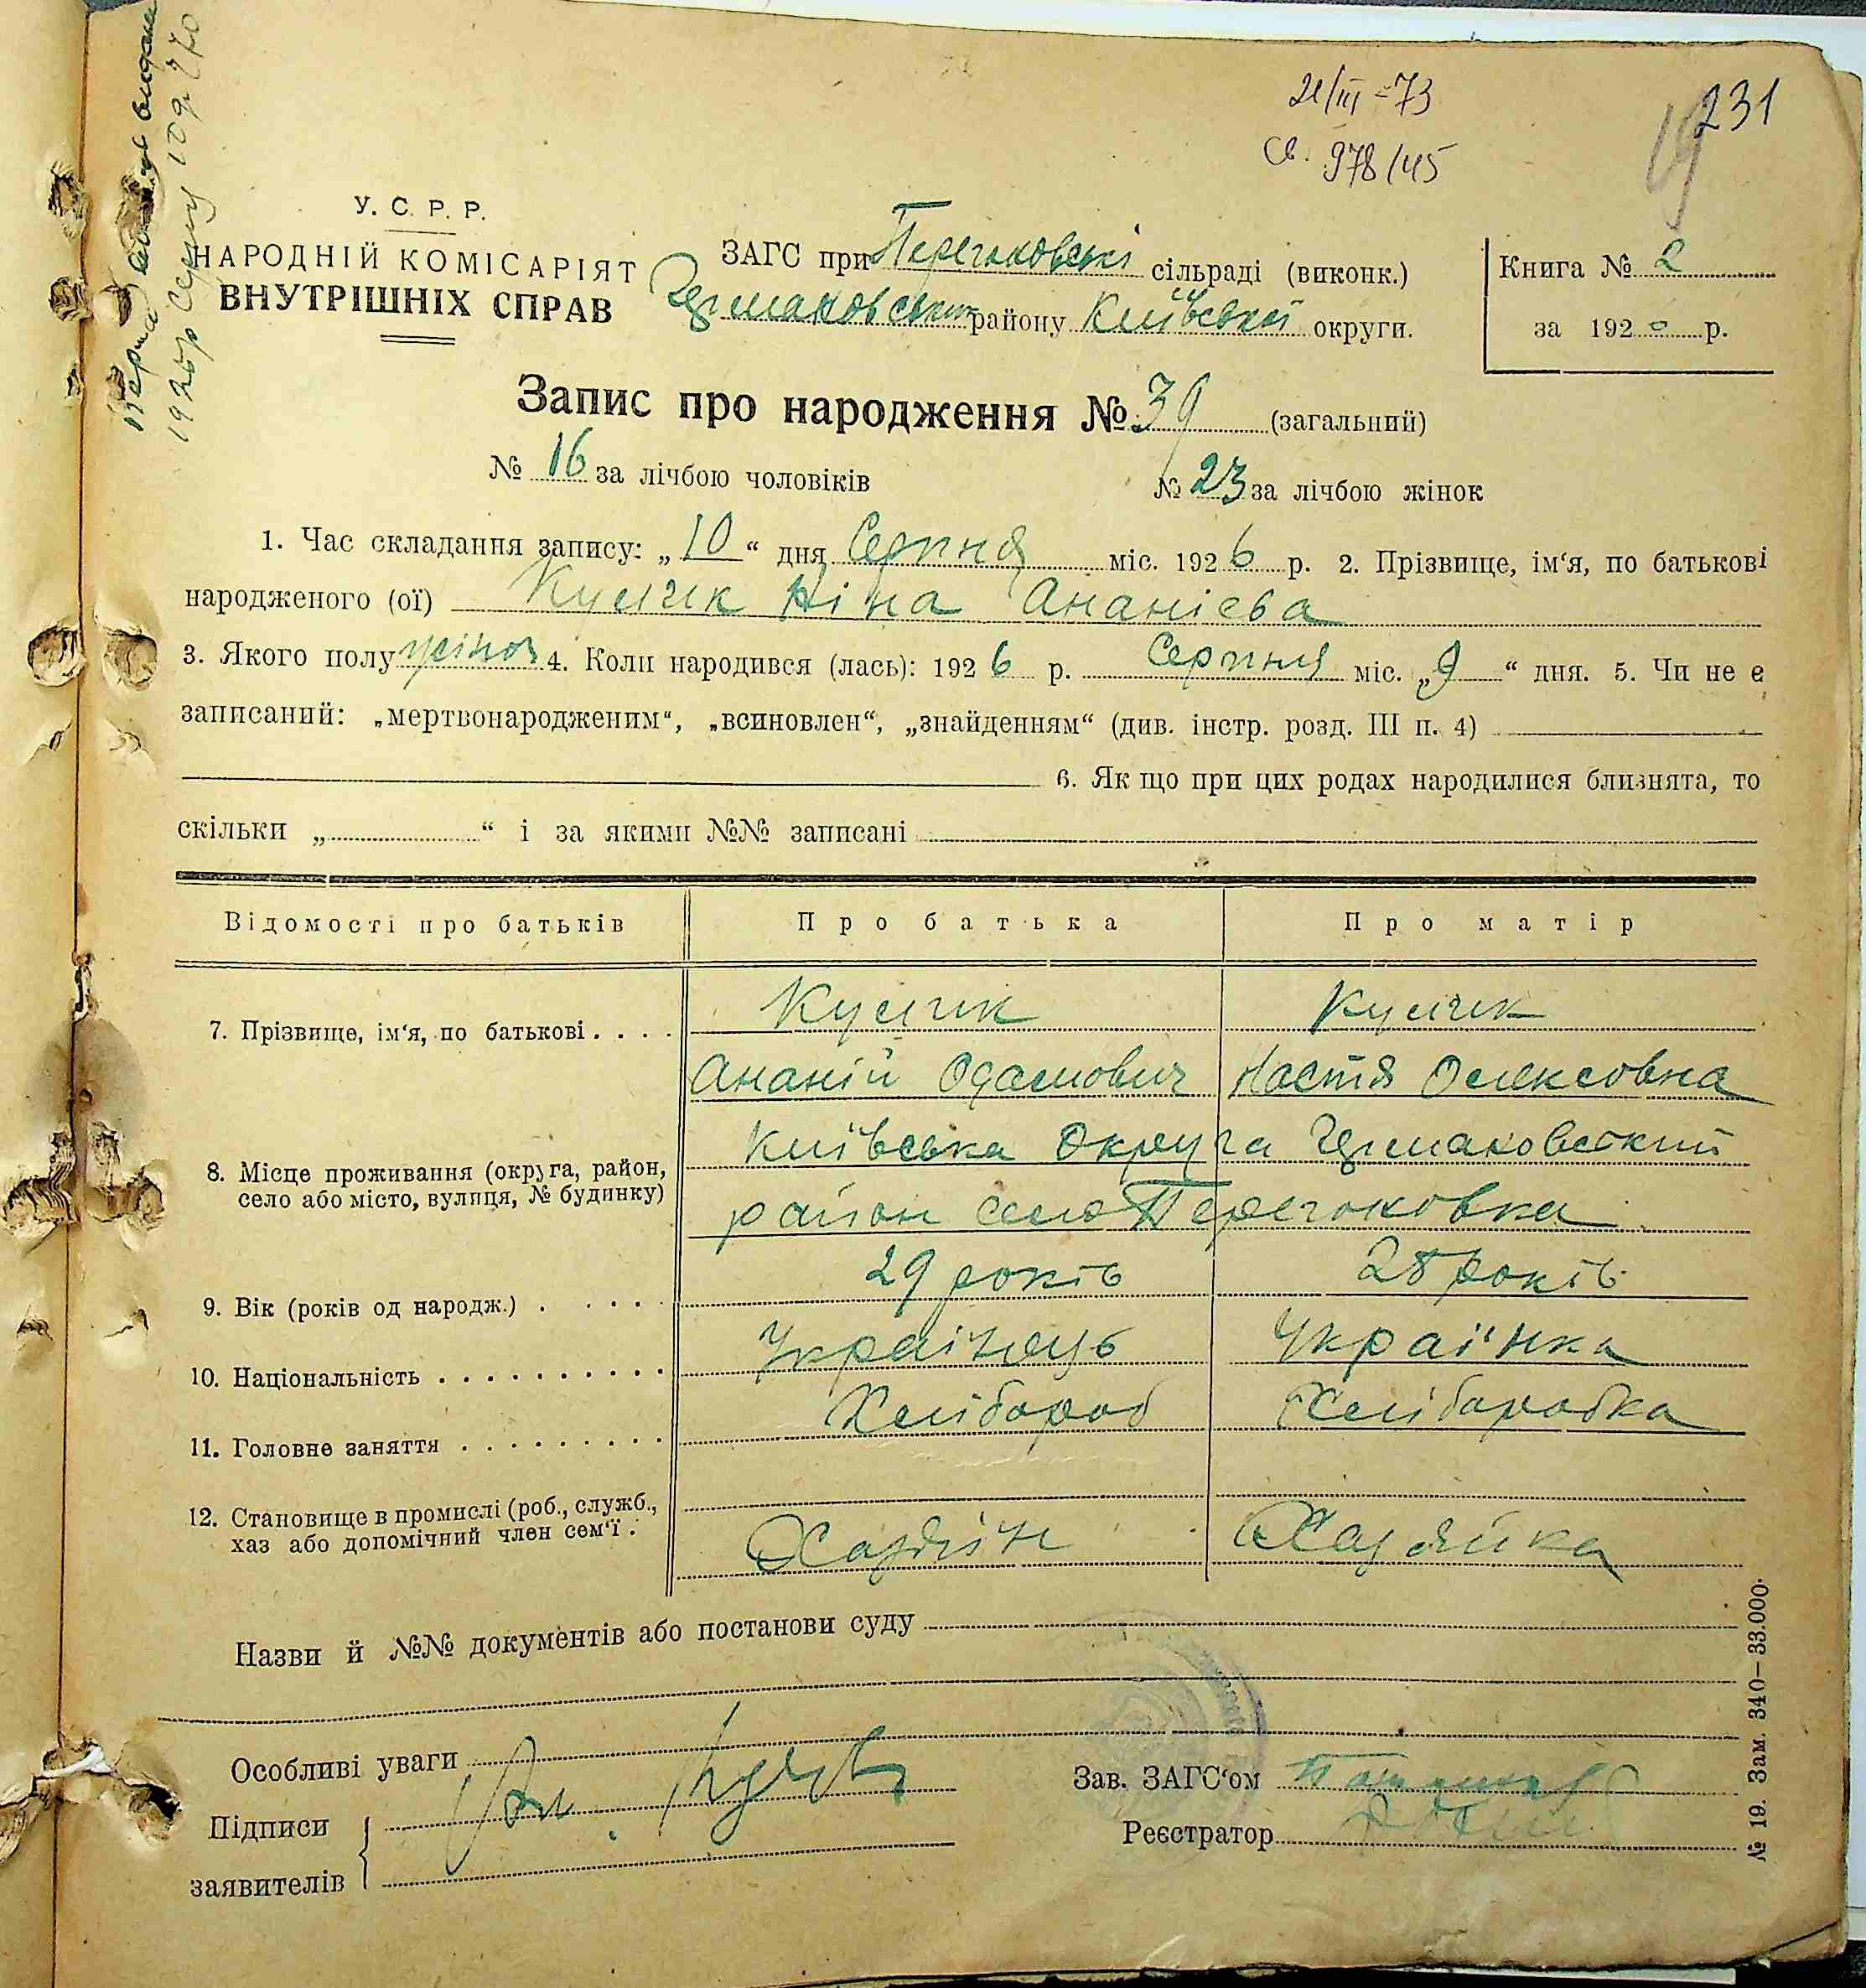 21/III-73
231
Св. 978/45
19
У. С. Р. Р.
НАРОДНІЙ КОМІСАРІЯТ
ВНУТРІШНІХ СПРАВ
ЗАГС при сільраді (виконк.)
району Київської округи.
Книга № 2
за 192 р.
Запис про народження № 39 (загальний)
№ 16 за лічбою чоловіків № 23 за лічбою жінок
1. Час складання запису: „10“ дня Серпня міс. 1926 р. 2. Прізвище, ім‘я, по батькові
народженого (ої) Ніна Ананієва
3. Якого полу жіноч 4. Коли народився (лась): 1926 р. Серпня міс. „9“ дня. 5. Чи не є
записаний: „мертвонародженим“, „всиновлен“, „знайденням“ (див. інстр. розд. III п. 4)
6. Як що при цих родах народилися близнята, то
скільки „ “ і за якими №№ записані
Відомості про батьків Про батька Про матір
7. Прізвище, ім‘я, по батькові
Ананій Одамович Настя Олексовна
8. Місце проживання (округа, район,
село або місто, вулиця, № будинку)
Київська Округа
район село
9. Вік (років од народж.) 29 років 28 років
10. Національність Українець Українка
11. Головне заняття Хлібороб Хліборобка
12. Становище в промислі (роб., служб.,
хаз або допомічний член сем‘ї
Хазяїн Хазяйка
Назви й №№ документів або постанови суду
Особливі уваги
Підписи
заявителів
Зав. ЗАГС‘ом
Реєстратор
№ 19. Зам. 340—33.000.